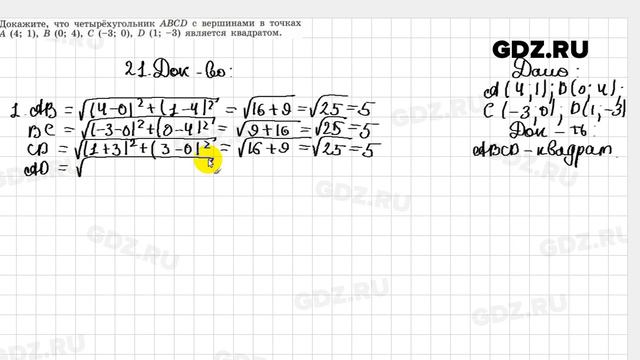 Докажите, что четырёхугольник ABCD с вершинами в точках
A (4; 1), B (0; 4), C (−3; 0), D (1; −3) является квадратом.
GDZ.RU
21. Док-во:
Дано:
A(4;1); B(0;4).
C(-3;0), D(1;-3)
Док-ть
ABCD-квадрат.
1. AB = √(4-0)²+(1-4)² = √16+9 = √25 = 5
BC = √(-3-0)²+(0-4)² = √9+16 = √25 = 5
CD = √(1+3)²+(3-0)² = √16+9 = √25 = 5
AD = √
GDZ.RU
GDZ.RU
GDZ.RU
GDZ.RU